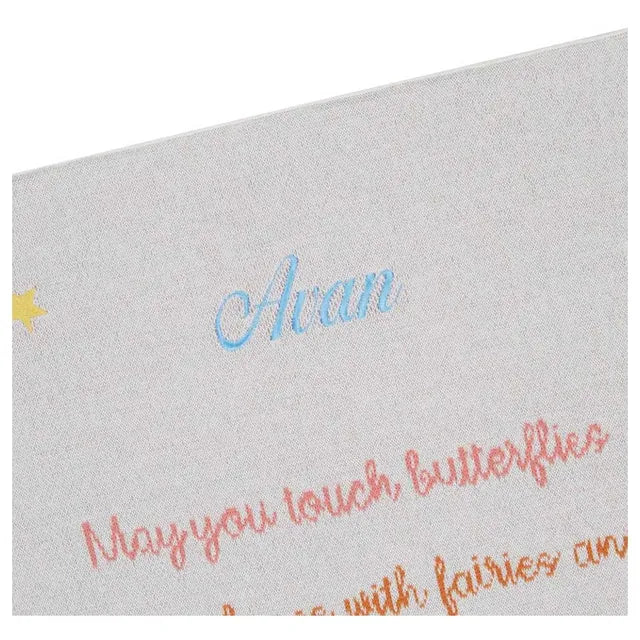 Avan
May you touch butterflies
with fairies